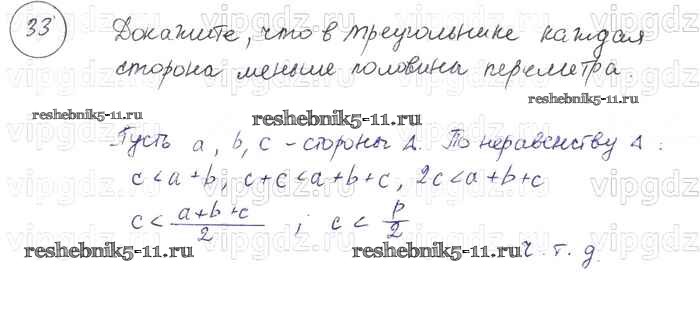 33 Докажите, что в треугольнике каждая
сторона меньше половины периметра.
reshebnik5-11.ru
reshebnik5-11.ru
reshebnik5-11.ru
Пусть a, b, c – стороны Δ. По неравенству Δ:
c < a + b, c + c < a + b + c, 2c < a + b + c
c < (a+b+c)/2 ; c < P/2
reshebnik5-11.ru
reshebnik5-11.ru
reshebnik5-11.ru
ч. т. д.
vipgdz